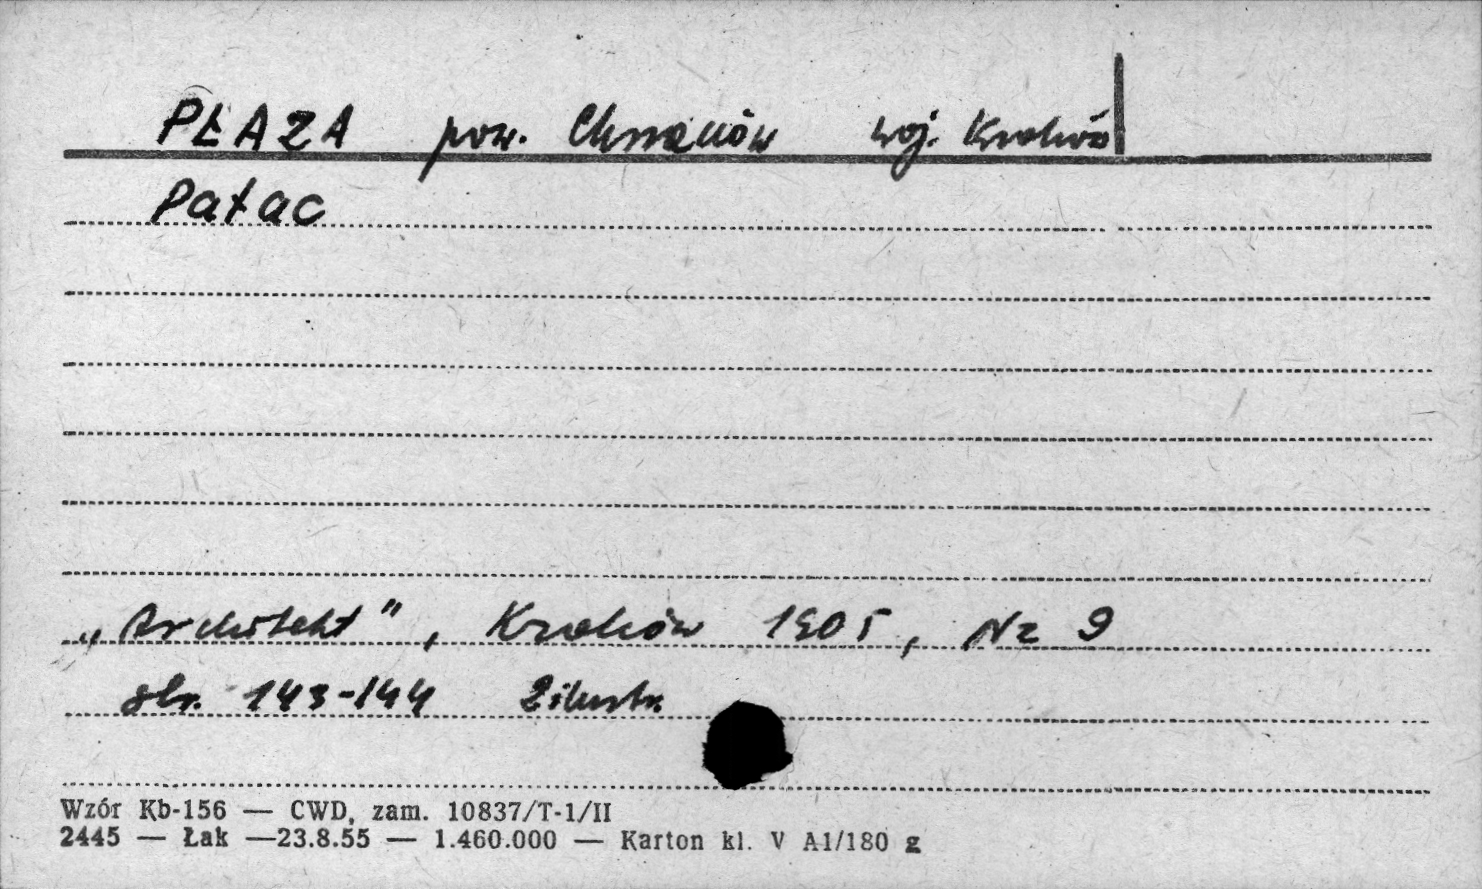 PŁAZA pow. Chrzanów woj. Kraków
Pałac
„Architekt", Kraków 1905, Nr 9
str. 143-144 2 ilustr.
Wzór Kb-156 — CWD, zam. 10837/T-1/II
2445 — Łak —23.8.55 — 1.460.000 — Karton kl. V A1/180 g